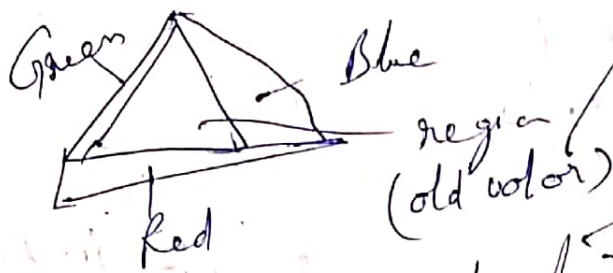 Green
Blue
region
(old color)
Red